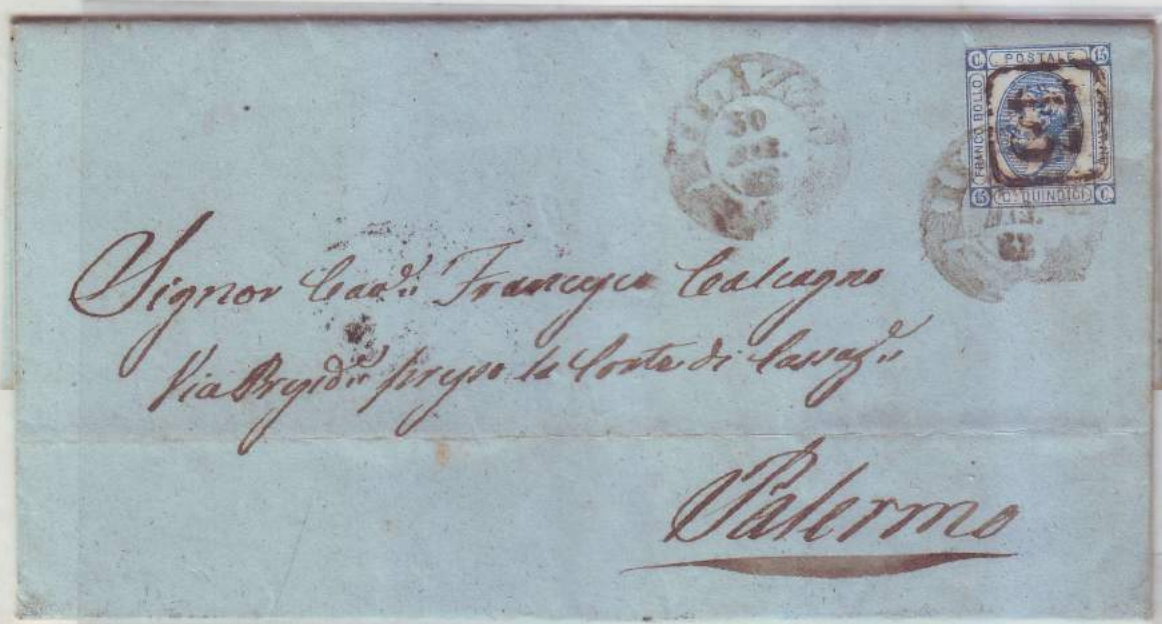 C. POSTALE 15
FRANCO BOLLO
15 C. QUINDICI C.
30
Signor Cav.r Francesco Calcagno
presso la Corte di Cassaz.e
Palermo